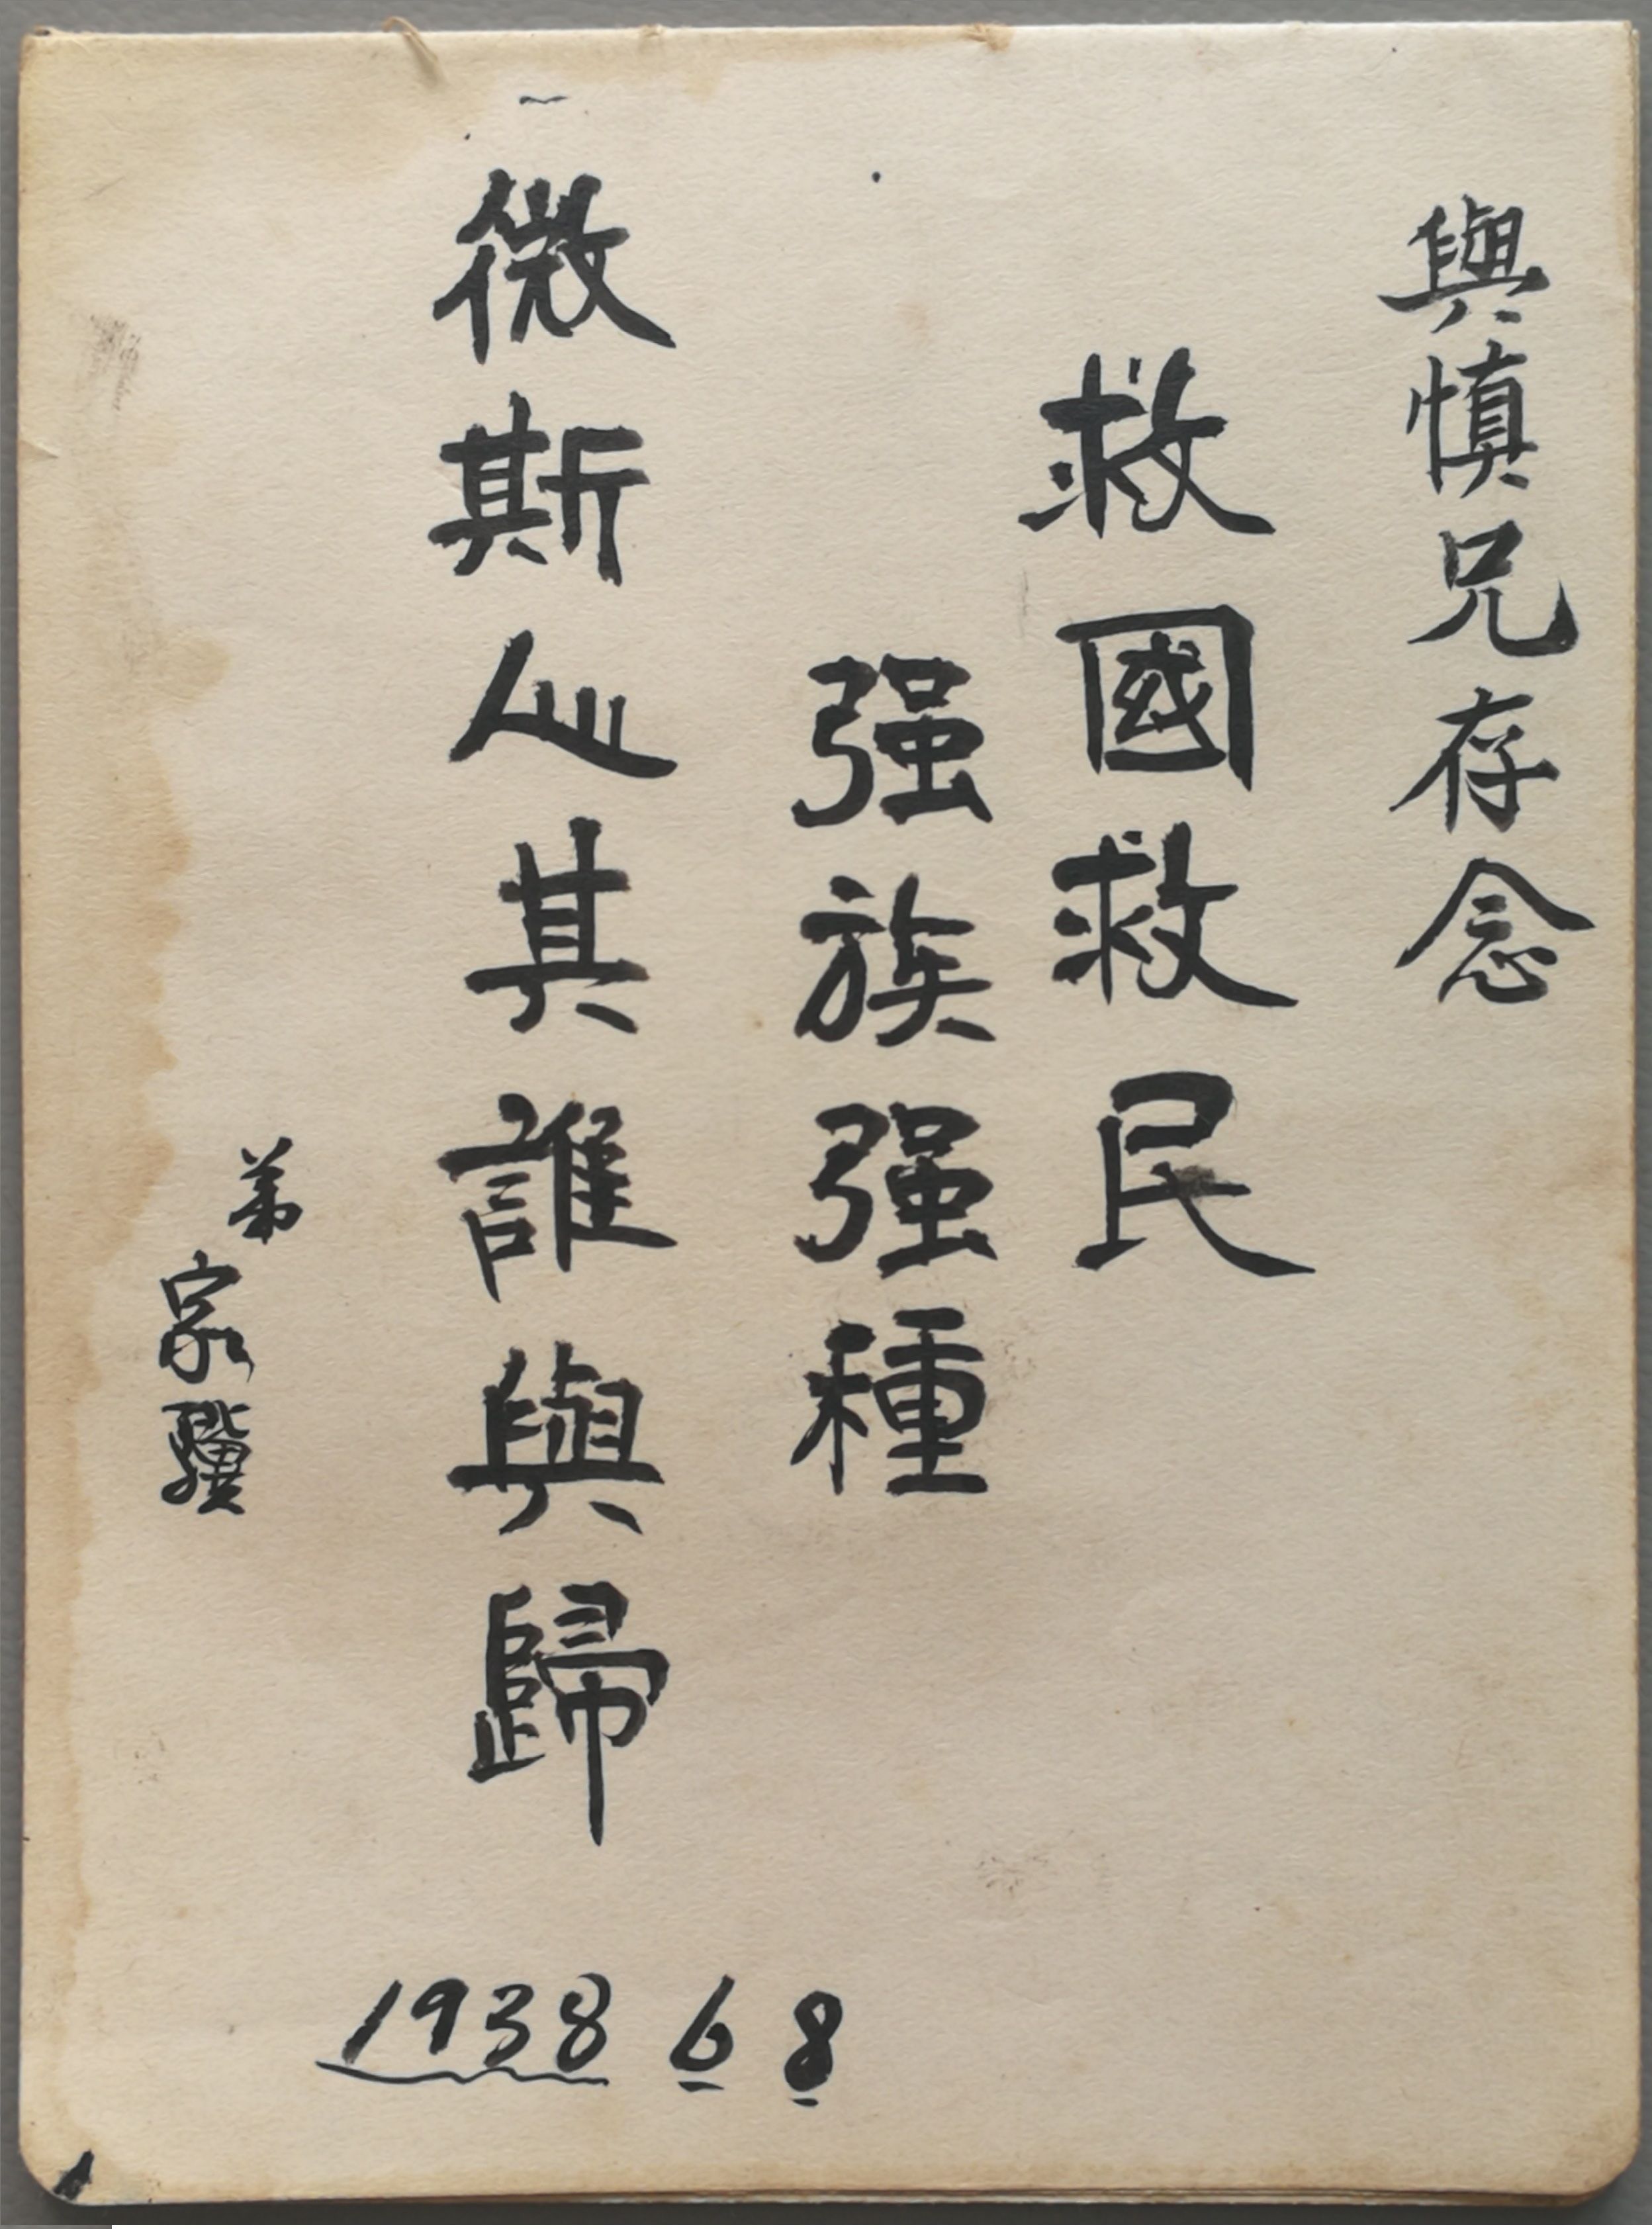 與慎兄存念
救國救民
强族强種
微斯心其誰與歸
弟
家驥
1938 6 8